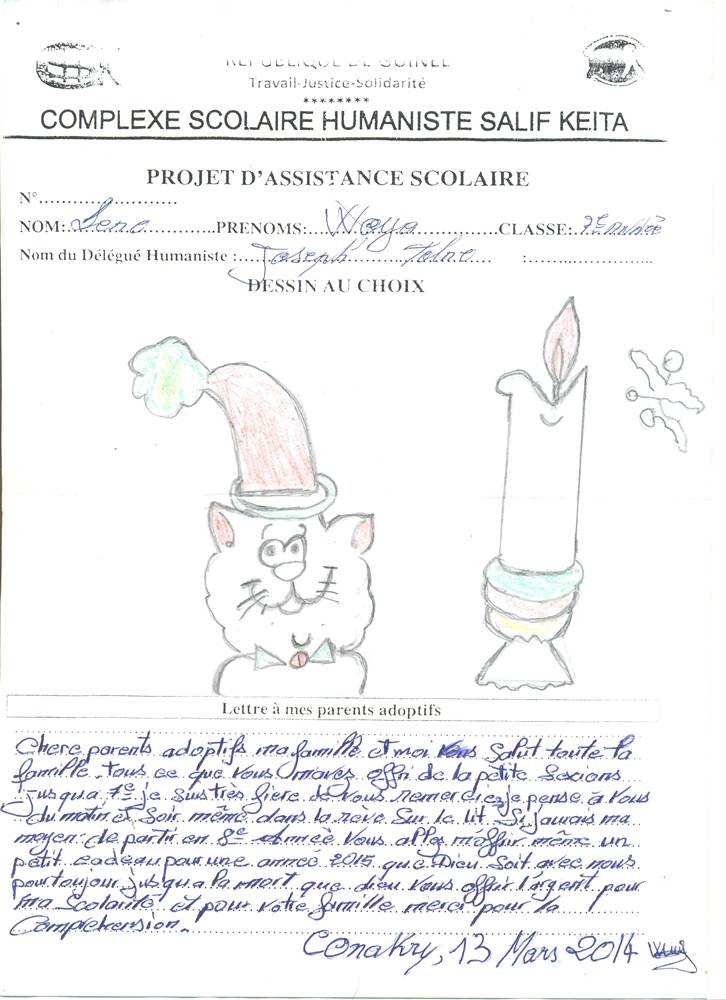 REPUBLIQUE DE GUINEE
Travail-Justice-Solidarité
********
COMPLEXE SCOLAIRE HUMANISTE SALIF KEITA
PROJET D'ASSISTANCE SCOLAIRE
N°........................
NOM: Leno PRENOMS: Waya CLASSE: 7e Année
Nom du Délégué Humaniste : Joseph Tolno :
DESSIN AU CHOIX
Lettre à mes parents adoptifs
Chere parents adoptifs ma famille et moi Vous Salut toute la
famille. Tous ce que Vous m'avez offri de la petite Secions
jusqua 7e je Suis très fiere de Vous remerciez je pense à Vous
du matin et Soir même dans la reve Sur le lit. Si jaurais ma
moyen: de partir en 8e Année Vous allez m'offrir même un
petit cadeau pour une année 2015 que Dieu Soit avec nous
pour toujour jusqua la mort que dieu Vous offrir l'argent pour
ma Scolarité et pour Votre famille merci pour la
Compréhension.
Conakry, 13 Mars 2014